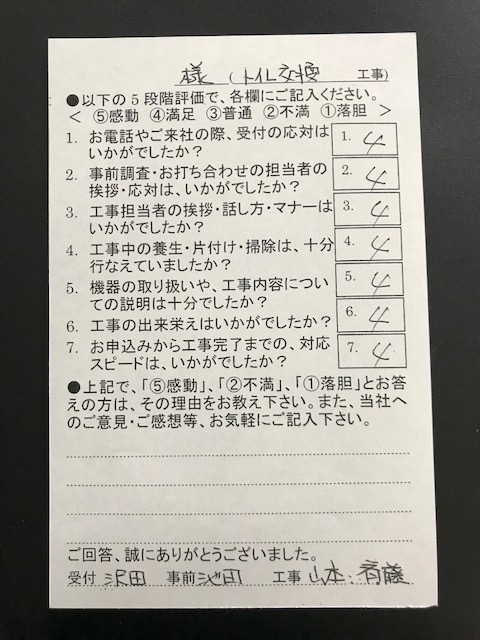 様 (トイレ交換 工事)
●以下の5段階評価で、各欄にご記入ください。
< ⑤感動 ④満足 ③普通 ②不満 ①落胆 >
1. お電話やご来社の際、受付の応対は
いかがでしたか?
1. 4
2. 事前調査・お打ち合わせの担当者の
挨拶・応対は、いかがでしたか?
2. 4
3. 工事担当者の挨拶・話し方・マナーは
いかがでしたか?
3. 4
4. 工事中の養生・片付け・掃除は、十分
行なえていましたか?
4. 4
5. 機器の取り扱いや、工事内容につい
ての説明は十分でしたか?
5. 4
6. 工事の出来栄えはいかがでしたか?
6. 4
7. お申込みから工事完了までの、対応
スピードは、いかがでしたか?
7. 4
●上記で、「⑤感動」、「②不満」、「①落胆」とお答
えの方は、その理由をお教え下さい。また、当社へ
のご意見・ご感想等、お気軽にご記入下さい。
ご回答、誠にありがとうございました。
受付 沢田 事前 池田 工事 山本・斉藤